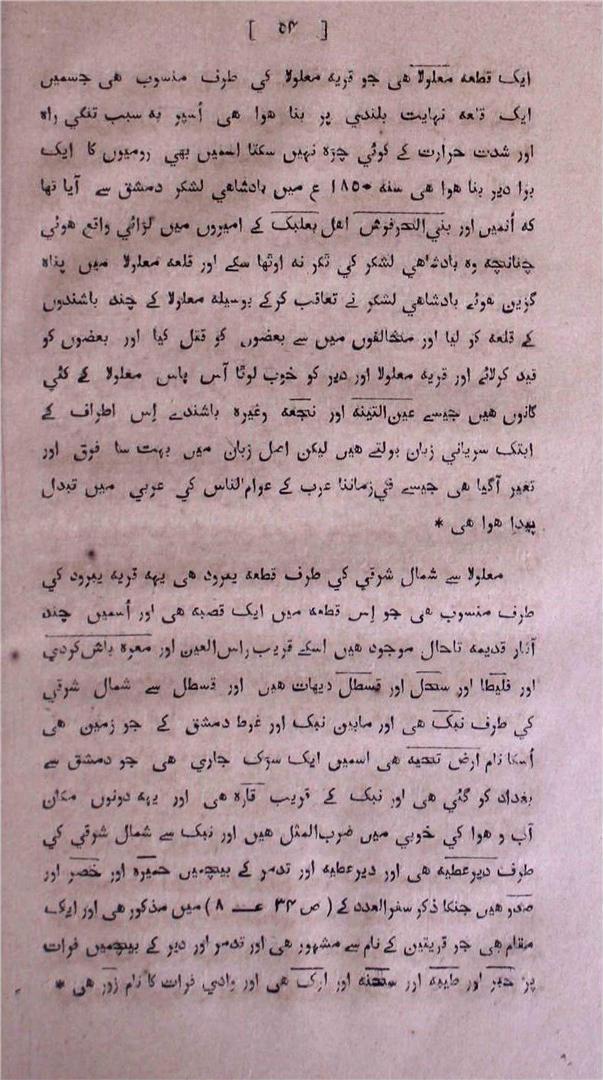 [ ٥٢ ]
ایک قطعه معلولا هی جو قریه معلولا کی طرف منسوب هی جسمیں
ایک قلعه نهایت بلندی پر بنا هوا هی اُسپر به سبب تنگی راه
اور شدت حرارت کے کوئی چڑه نهیں سکتا اسمیں بهی رومیوں کا ایک
بڑا دیر بنا هوا هی سنه ١٨٥٠ ع میں بادشاهی لشکر دمشق سے آیا تها
که اُنمیں اور بنی الحرفوش اهل بعلبک کے امیروں میں لڑائی واقع هوئی
چنانچه وه بادشاهی لشکر کی ٹکر نه اوٹها سکے اور قلعه معلولا میں پناه
گزین هوئے بادشاهی لشکر نے تعاقب کرکے بوسیله معلولا کے چند باشندوں
کے قلعه کو لیا اور مخالفوں میں سے بعضوں کو قتل کیا اور بعضوں کو
قید کرلائے اور قریه معلولا اور دیر کو خوب لوٹا آس پاس معلولا کے کئی
گانوں هیں جیسے عین‌التینه اور نجعه وغیره باشندے اِس اطراف کے
ابتک سریانی زبان بولتے هیں لیکن اصل زبان میں بهت سا فرق اور
تغیر آگیا هی جیسے فی‌زماننا عرب کے عوام‌الناس کی عربی میں تبدل
پیدا هوا هی *
معلولا سے شمال شرقی کی طرف قطعه یبرود هی یهه قریه یبرود کی
طرف منسوب هی جو اِس قطعه میں ایک قصبه هی اور اُسمیں چند
آثار قدیمه تاحال موجود هیں اسکے قریب راس‌العین اور معره باش‌کردی
اور فلیطا اور سحل اور قسطل دیهات هیں اور قسطل سے شمال شرقی
کی طرف نبک هی اور مابین نبک اور غوطه دمشق کے جو زمین هی
اُسکا نام ارض تنحیه هی اسمیں ایک سڑک جاری هی جو دمشق سے
بغداد کو گئی هی اور نبک کے قریب قاره هی اور یهه دونوں مکان
آب و هوا کی خوبی میں ضرب‌المثل هیں اور نبک سے شمال شرقی کی
طرف دیرعطیه هی اور دیرعطیه اور تدمر کے بیچمیں حمیره اور خصر اور
صدر هیں جنکا ذکر سفرالعدد کے ( ص ٣٤ عــ ٨ ) میں مذکور هی اور ایک
مقام هی جو قریتین کے نام سے مشهور هی اور تدمر اور دیر کے بیچمیں فرات
پر اور طیبه اور سخنه اور ارک هی اور وادی فرات کا نام زور هی *